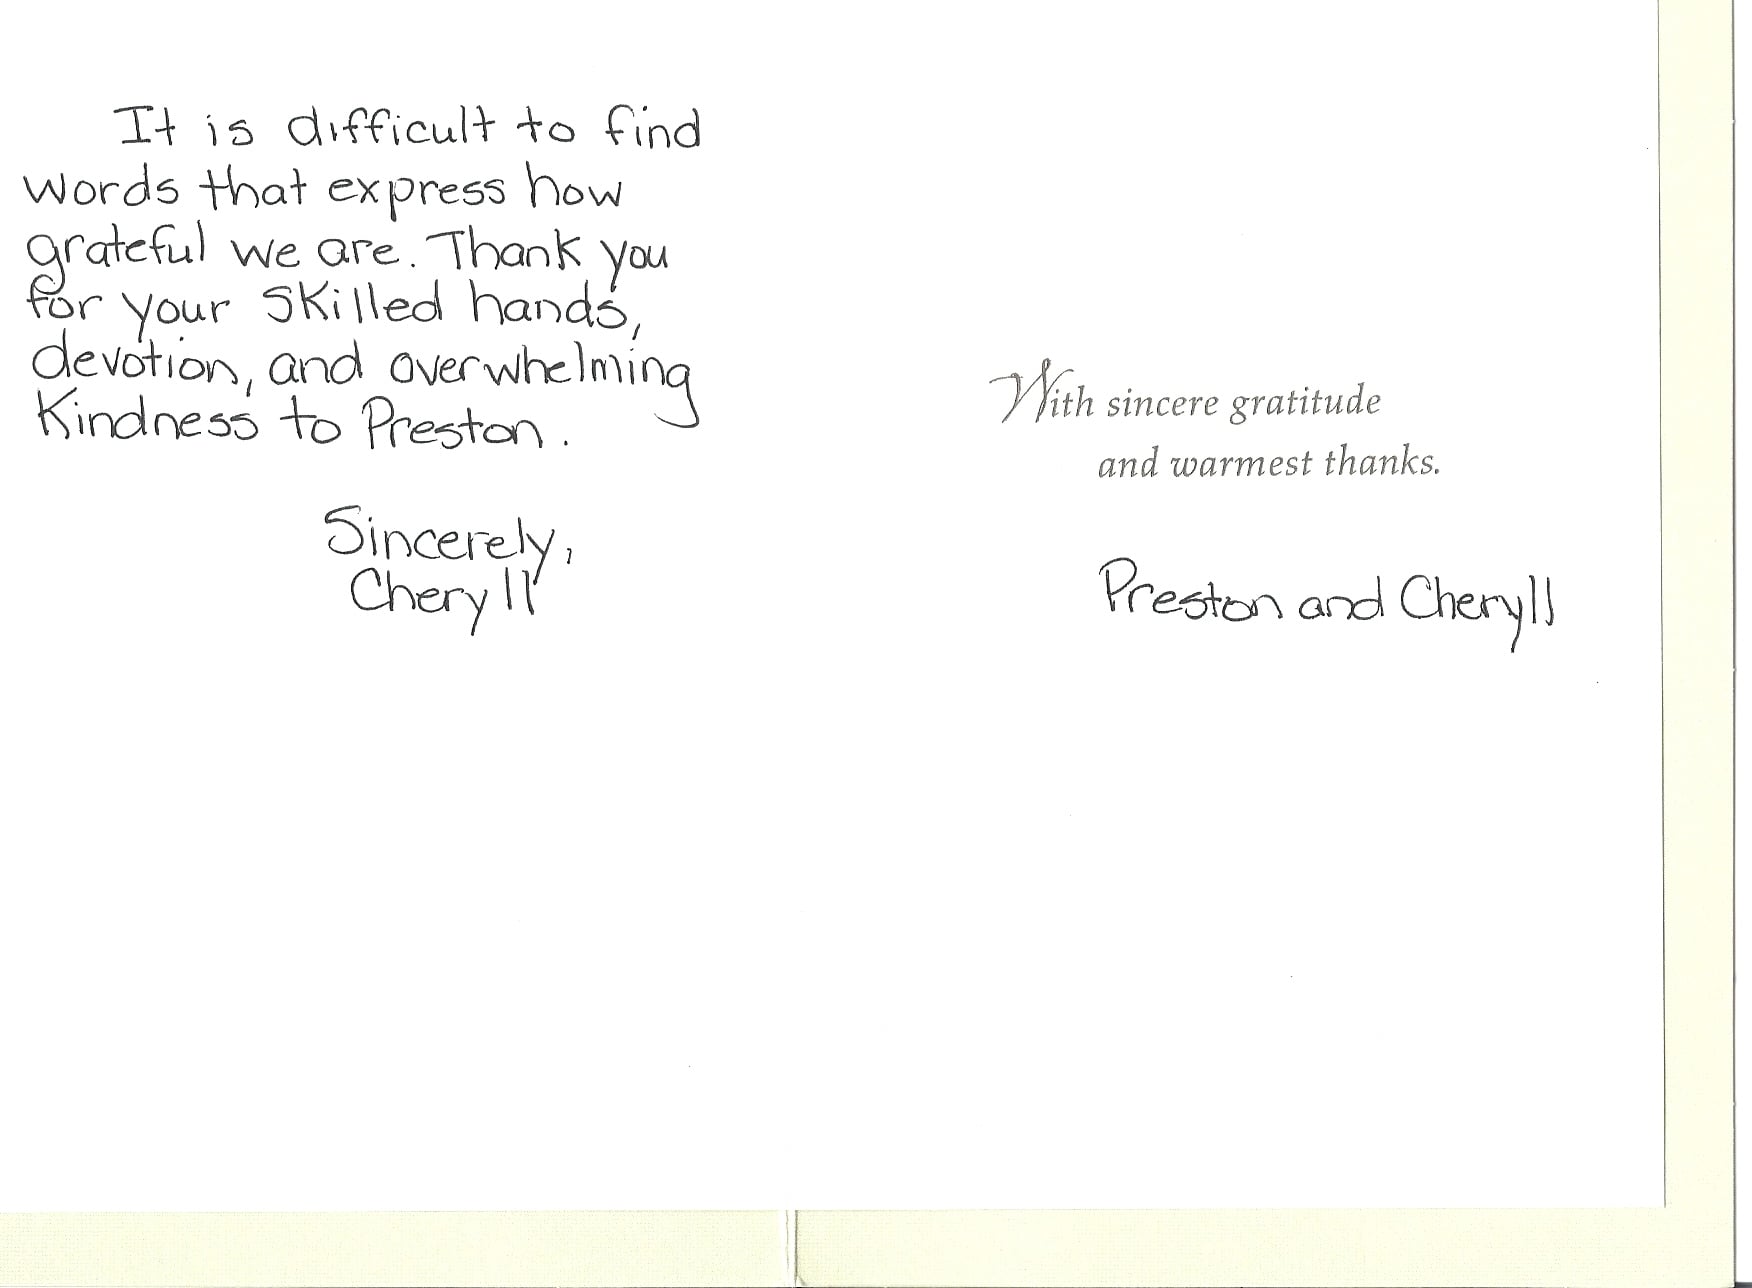 It is difficult to find
words that express how
grateful we are. Thank you
for your skilled hands,
devotion, and overwhelming
kindness to Preston.
Sincerely,
Cheryll
With sincere gratitude
and warmest thanks.
Preston and Cheryll